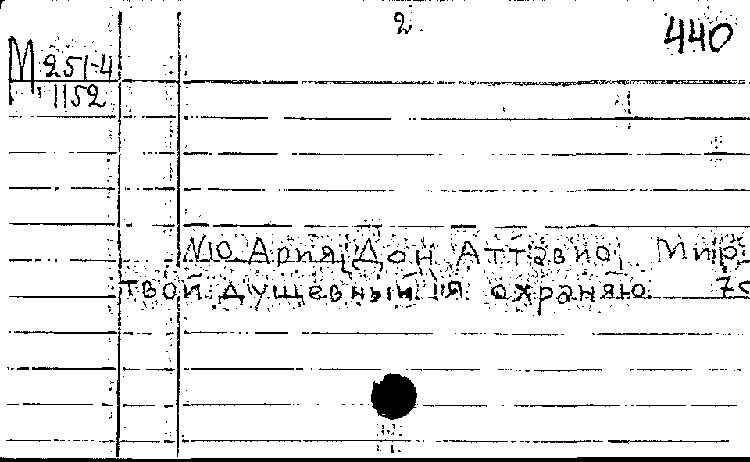 2.
440
М 251-4
1152
№10 Ария Дон Аттавио, Мир
твой душевный я охраняю 7с